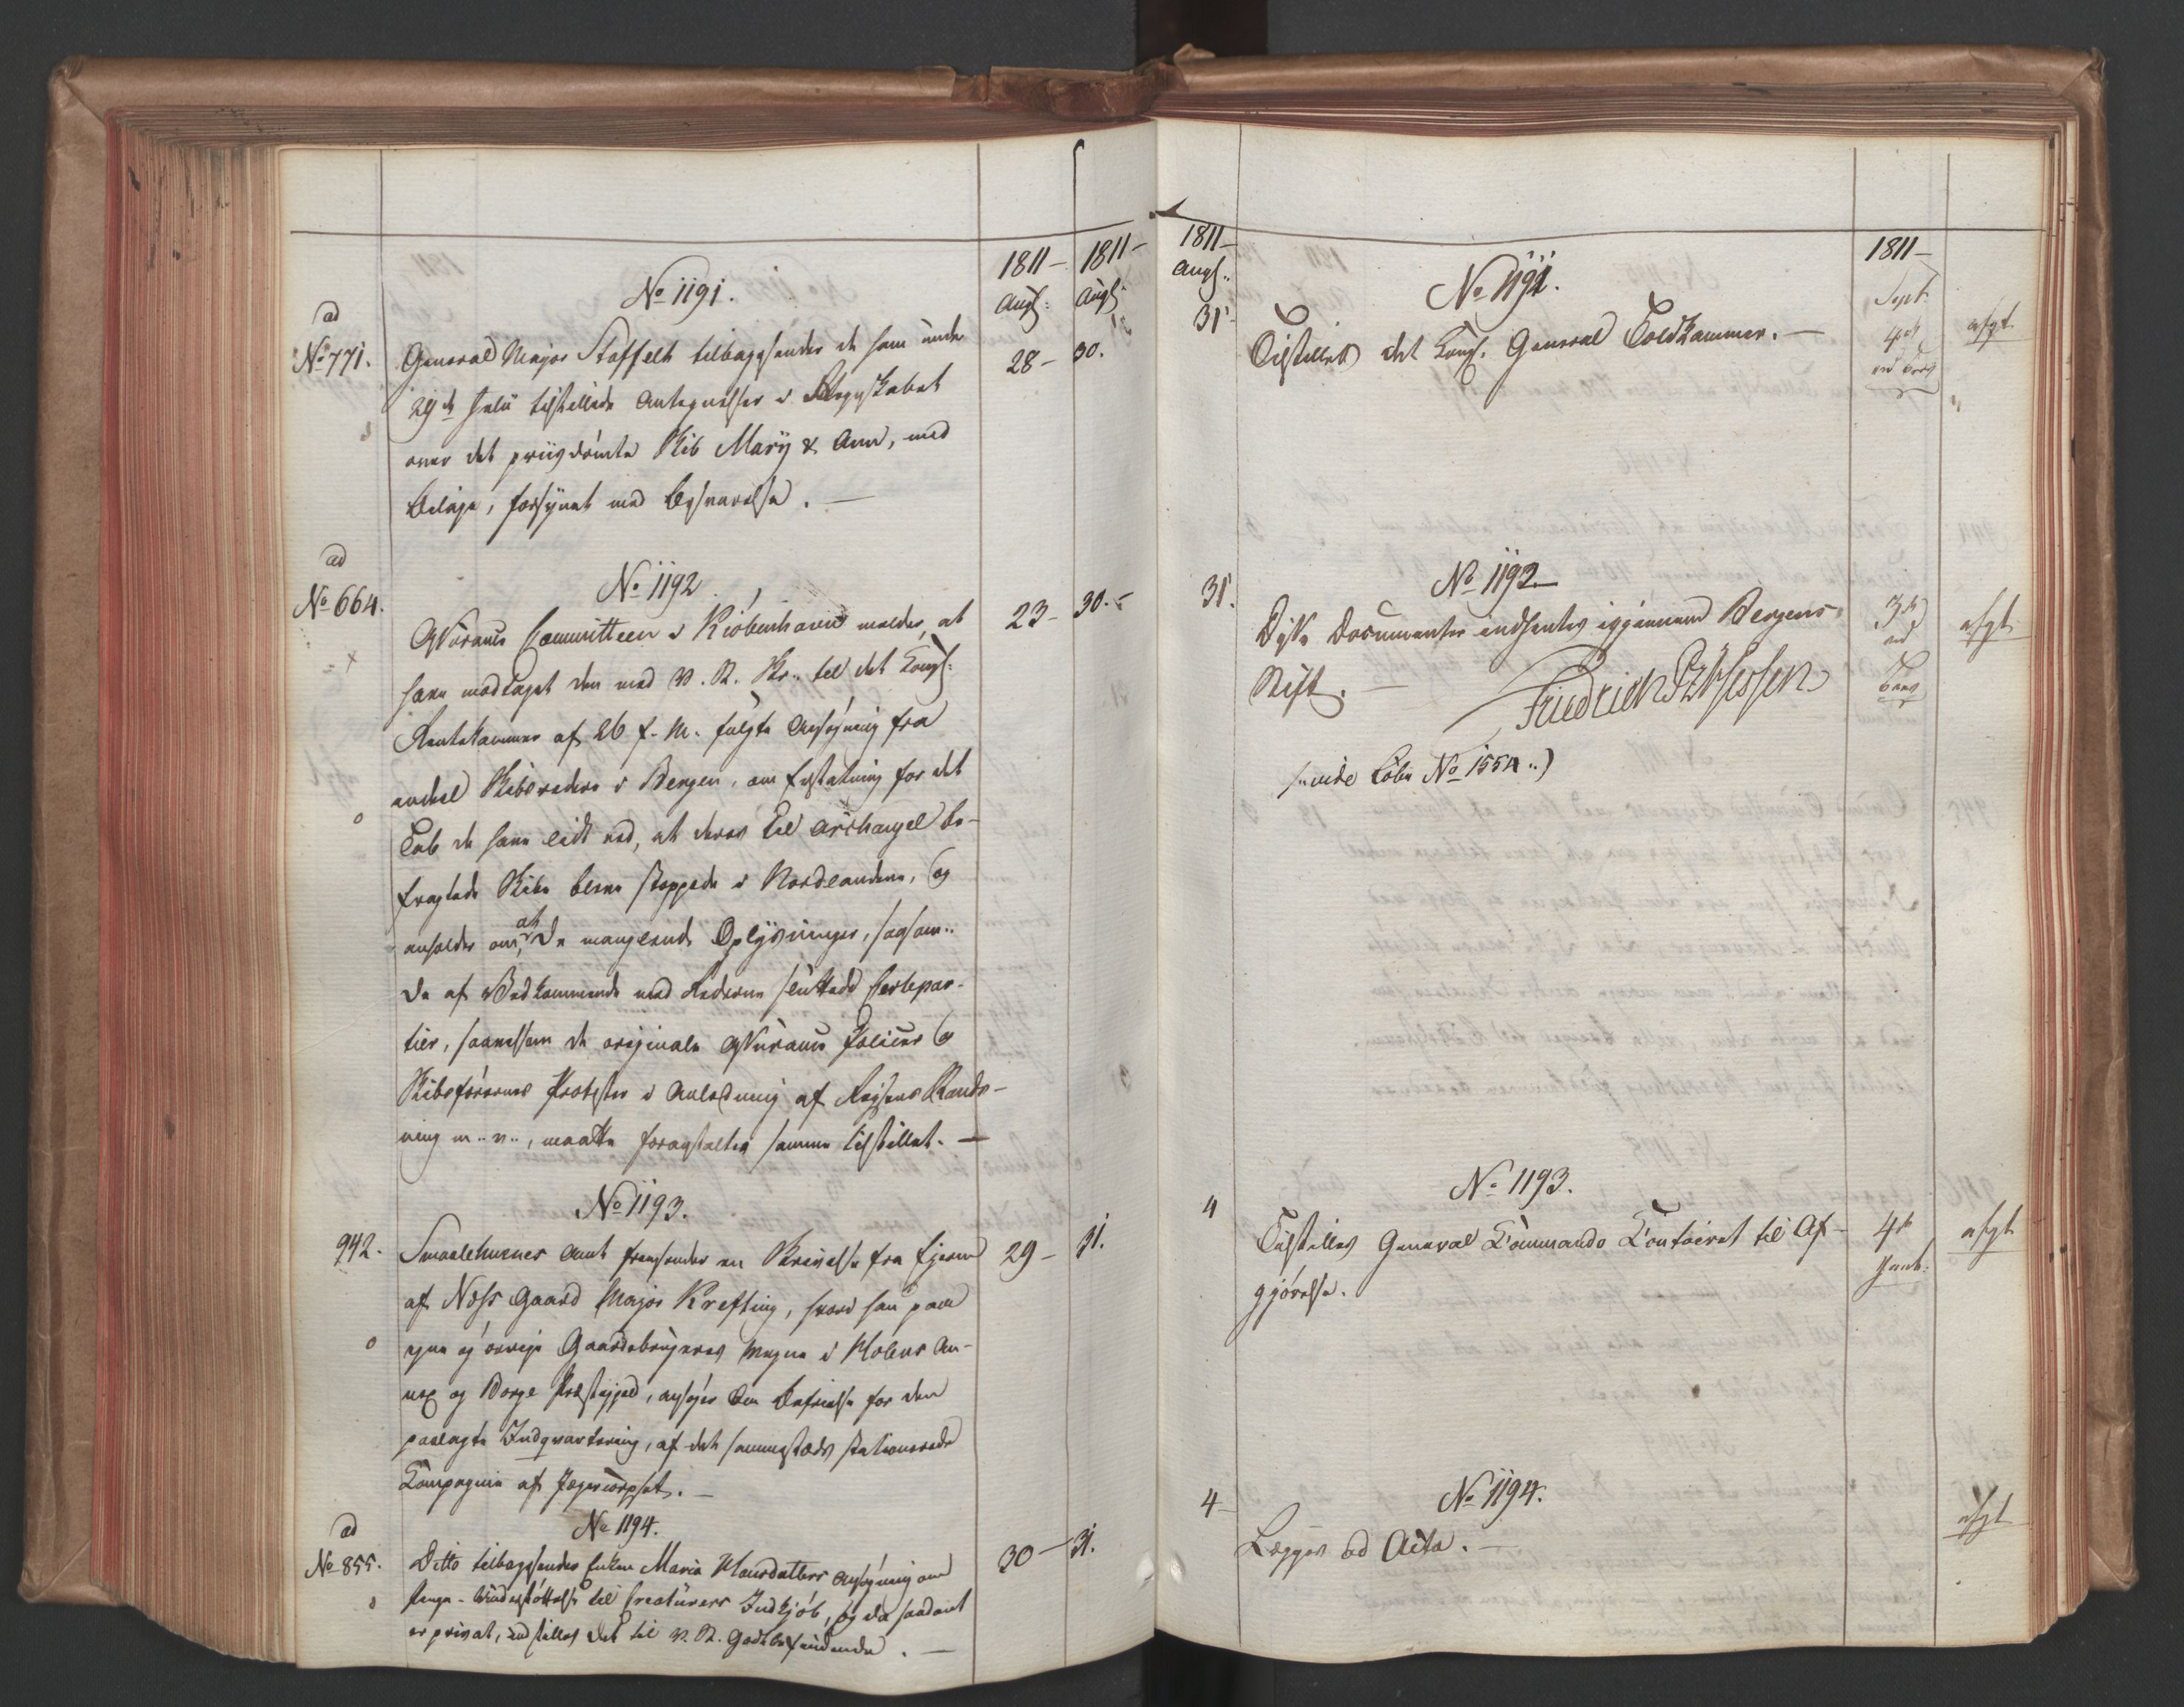 1811 –
Augs:
1811 –
Augs:
No 1191.
ad
No 771.
General Major Staffelt tilbagesender de ham under
29de Julii tilstillede Antegnelser i Regnskabet
over det priisdömte Skib Mary & Ann, med
Bilage, forsÿnet med Besvarelse. —
28 – 30.
ad
No 664.
No 1192
Committeen i Kiöbenhavn melder, at
have modtaget den med P. R. Skr. til det Kongl:
Rentekammer af 26 f. M. fulgte Ansögning fra
endeel Skibsredere i Bergen, om Erstatning for det
Tab de have lidt ved, at deres til Archangel be-
fragtede Skibe bleve stoppede i Nordlandene, og
anholder om, at De manglende Oplÿsninger, saasom..
De af Vedkommende med Rederne sluttede Certepar-
tier, saavelsom de originale Policer og
Skibsförernes Protester i Anledning af Reisens Stands-
ning m.. v.., maatte foranstaltes samme tilstillet. —
23 – 30. –
No 1193.
942.
Smaalehnenes Amt fremsender en Skrivelse fra Ejeren
af Næss Gaard Major Krefting, hvori han paa
egne og övrige Gaardebrugeres Vegne i Holens An-
nex og Borge Præstegjeld, ansöger om Befrielse for den
paalagte Indqvartering, af det sammesteds stationerede
Compagnie af Jegercorpset. —
29 – 31.
No 1194.
ad
No 855.
Ditto tilbagesender Enken Maria Hansdatters Ansögning om
Penge-Understöttelse til Creaturers Indkjöb, og da saadant
er privat, indstilles det til P. R. Godtbefindende. —
30 – 31.
1811 –
Augs..
31
No 1191.
Tilstilles det Kongl. General Toldkammer. —
1811 –
Sept.
4de
afgt
31.
No 1192 –
Disse Documenter indhentes igjennem Bergens
Stift. —
Friedrich Pz v Hessen
(: vide Löbe No 1554..)
3de
afgt
4
No 1193.
Tilstilles General Commando Contoiret til Af-
gjörelse.
4de
afgt
4 –
No 1194.
Lægges ad Acta. —
afgt